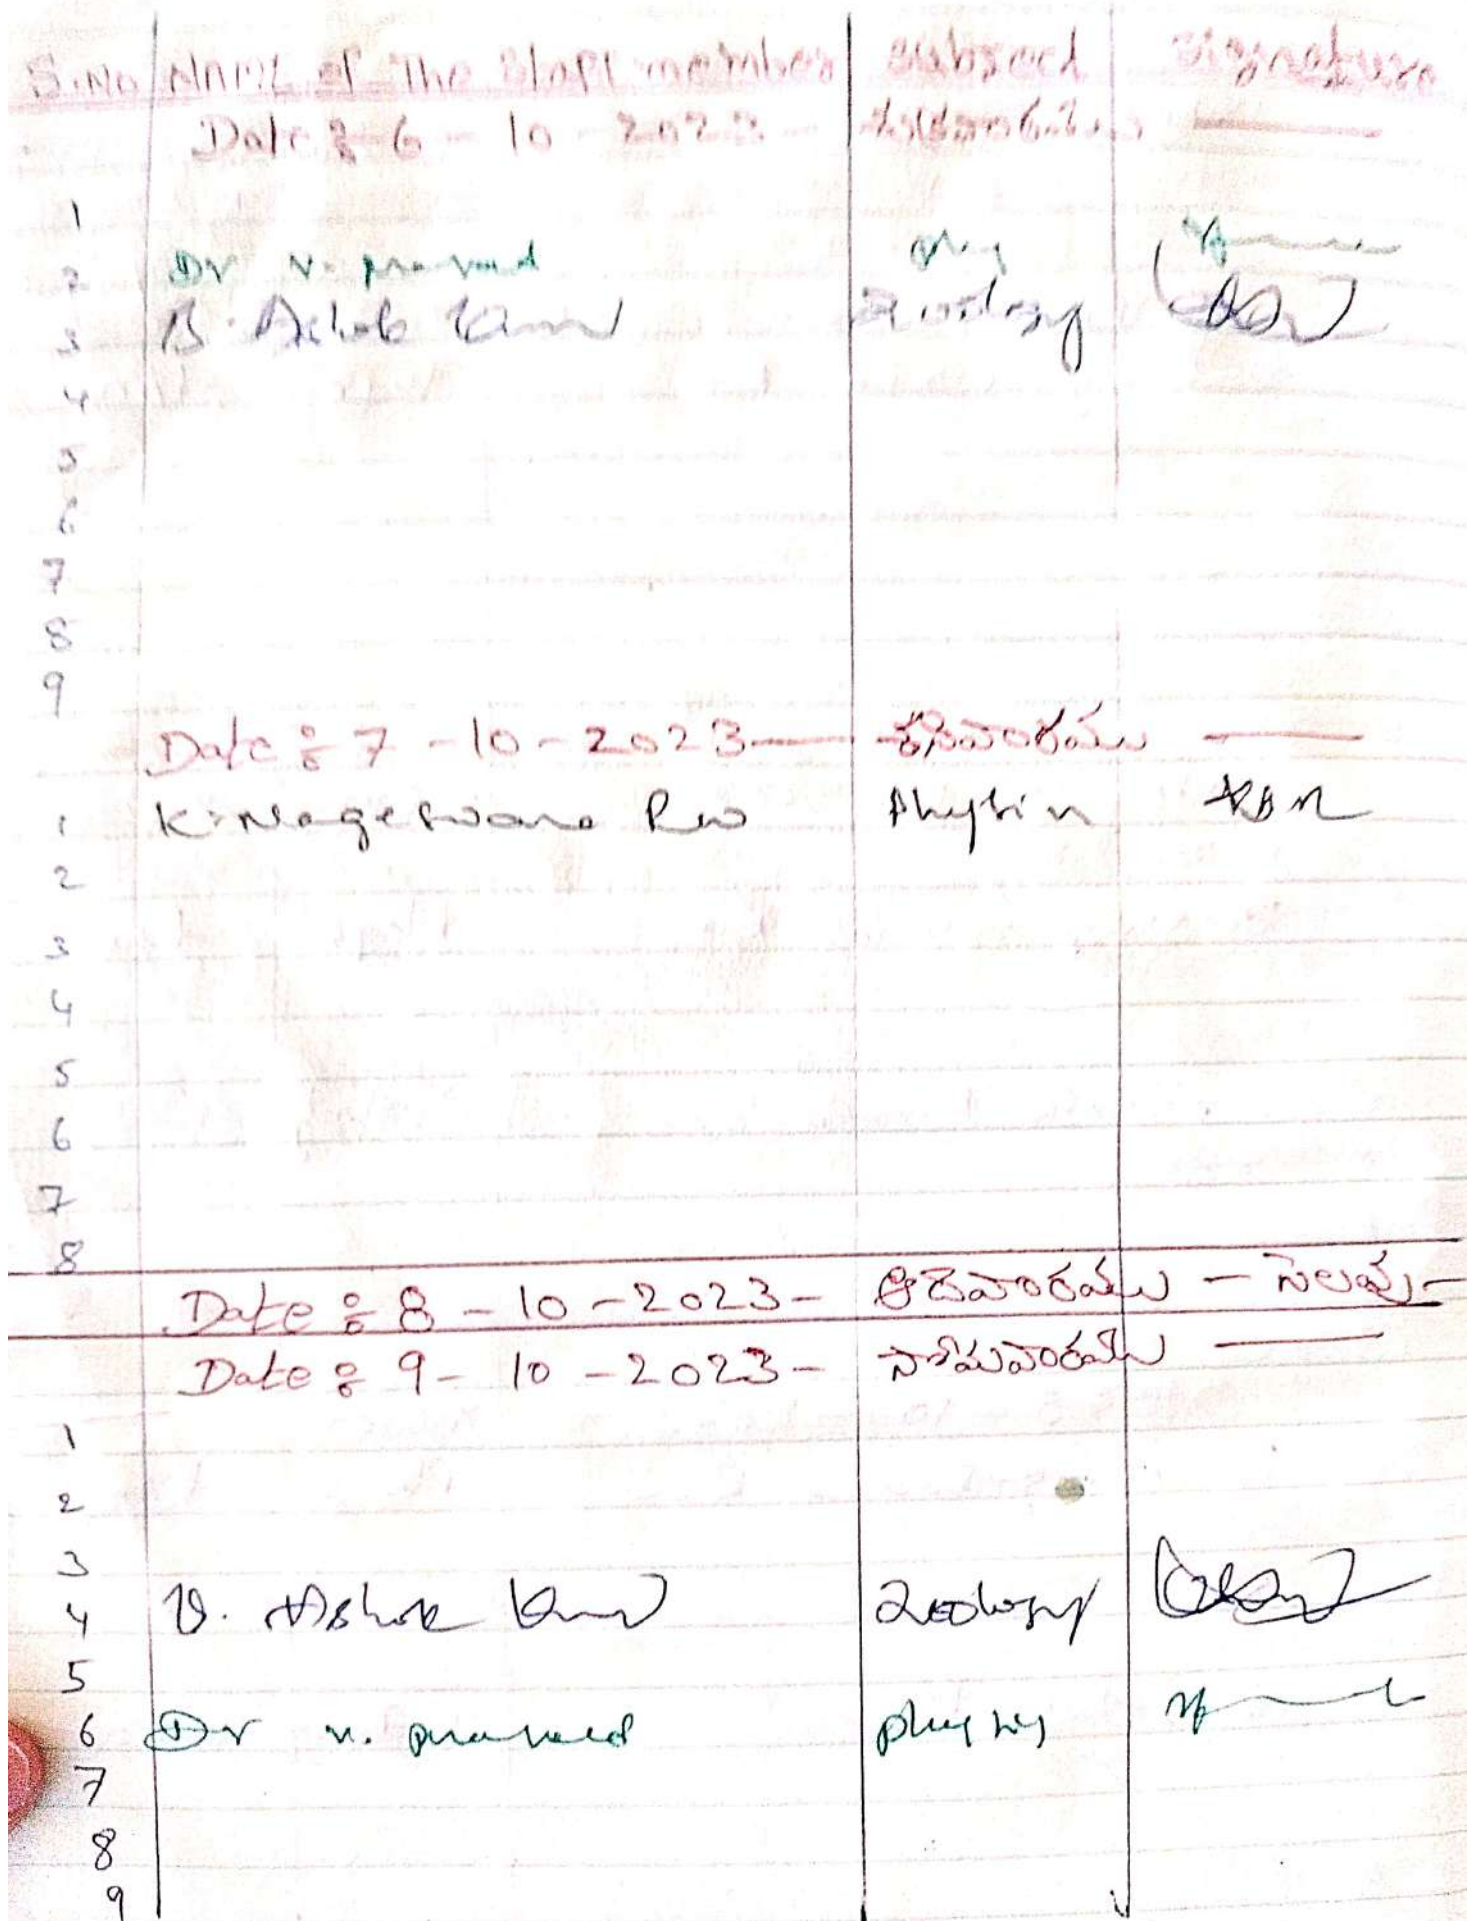 S.No NAME of The Staff member Subject Signature
Date : 6 10 2023 శుక్రవారము —
1
2 Dr N. Prasad phy
3 B. Ashok Kumar Zoology
4
5
6
7
8
9
Date : 7 - 10 - 2023 — శనివారము —
1 K. Nageswara Rao Physics KBR
2
3
4
5
6
7
8
Date : 8 - 10 - 2023 - ఆదివారము - సెలవు -
Date : 9 - 10 - 2023 - సోమవారము —
1
2
3
4 B. Ashok Kumar Zoology
5
6 Dr N. Prasad physics
7
8
9